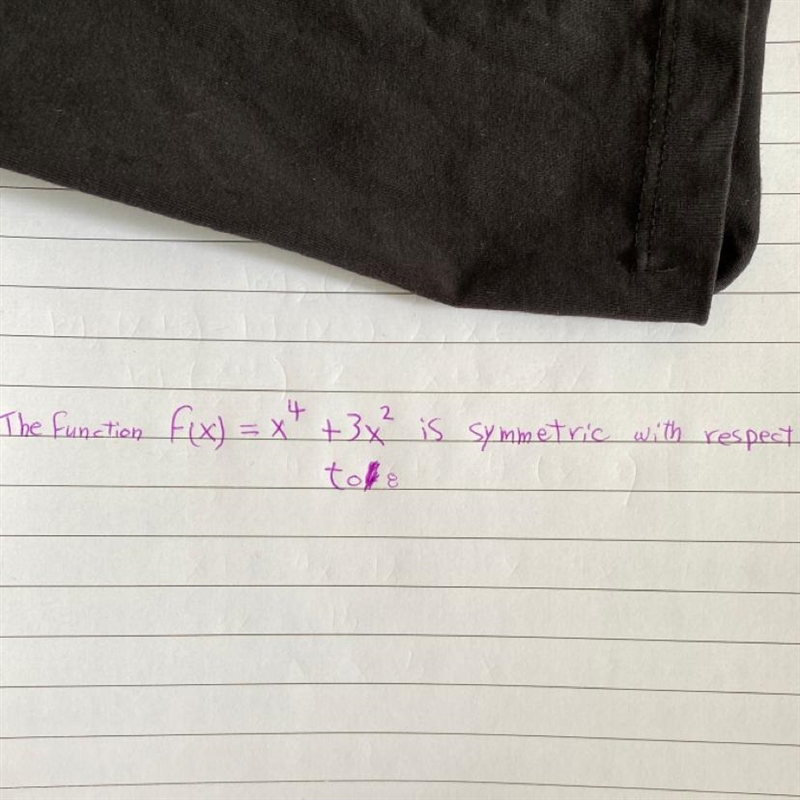 The function f(x) = x⁴ + 3x² is symmetric with respect
to :